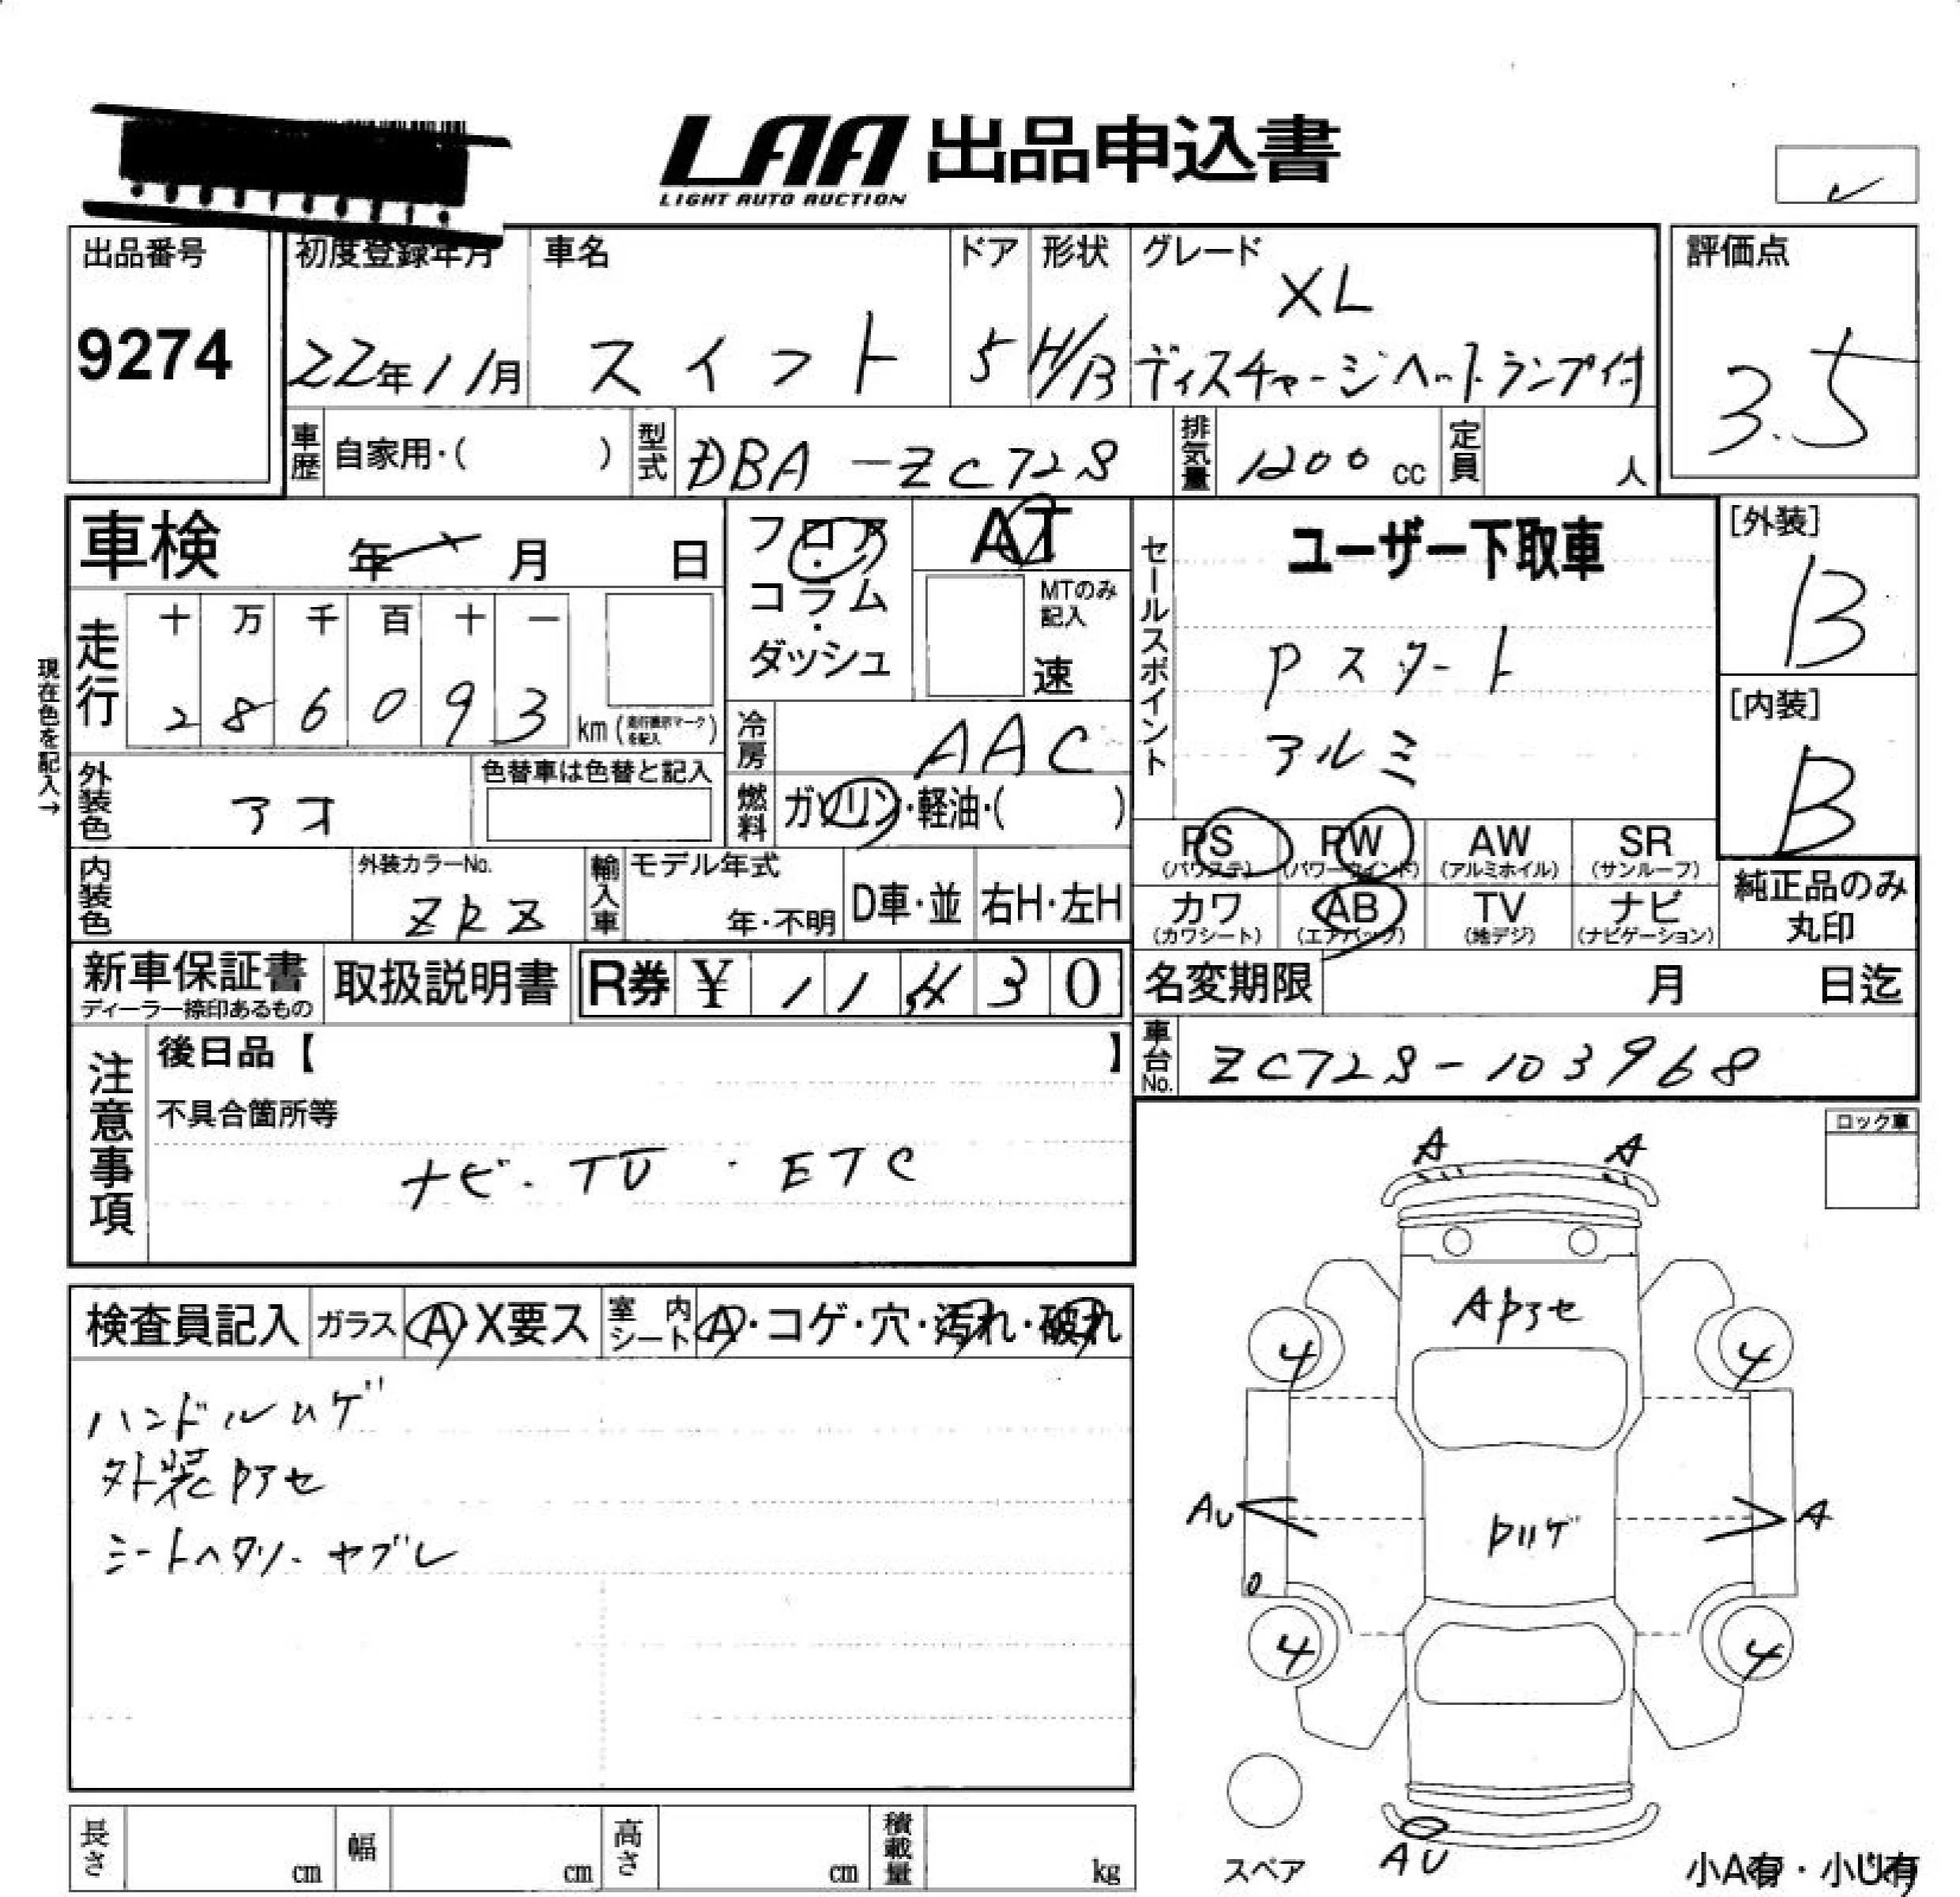 LAA 出品申込書
LIGHT AUTO AUCTION
出品番号
9274
初度登録年月
22年11月
車名
スイフト
ドア
5
形状
H/B
グレード
XL
ディスチャージヘットランプ付
評価点
3.5
車歴 自家用・( )
型式 DBA-ZC72S
排気量 1200 cc
定員 人
車検 年 月 日
フロア・コラム・ダッシュ
AT
MTのみ記入
速
セールスポイント
ユーザー下取車
Pスタート
アルミ
[外装]
B
[内装]
B
現在色を記入→
走行
十 万 千 百 十 一
2 8 6 0 9 3
km (走行表示マークを記入)
冷房 AAC
外装色 アオ
色替車は色替と記入
燃料 ガソリン・軽油・( )
PS (パワステ)
PW (パワーウインド)
AW (アルミホイル)
SR (サンルーフ)
カワ (カワシート)
AB (エアバック)
TV (地デジ)
ナビ (ナビゲーション)
純正品のみ丸印
内装色
外装カラーNo.
ZRZ
輸入車
モデル年式
年・不明
D車・並
右H・左H
新車保証書
ディーラー捺印あるもの
取扱説明書
R券 ¥ 1 1 4 3 0
名変期限 月 日迄
車台No. ZC72S-103968
注意事項
後日品【 】
不具合箇所等
ナビ・TV・ETC
ロック車
検査員記入
ガラス A・X要ス
室内シート A・コゲ・穴・汚れ・破れ
ハンドルハゲ
外装アセ
シートヘタリ・ヤブレ
A A
4 4
AU A
4 4
AU
スペア
小A有・小U有
長さ cm
幅 cm
高さ cm
積載量 kg